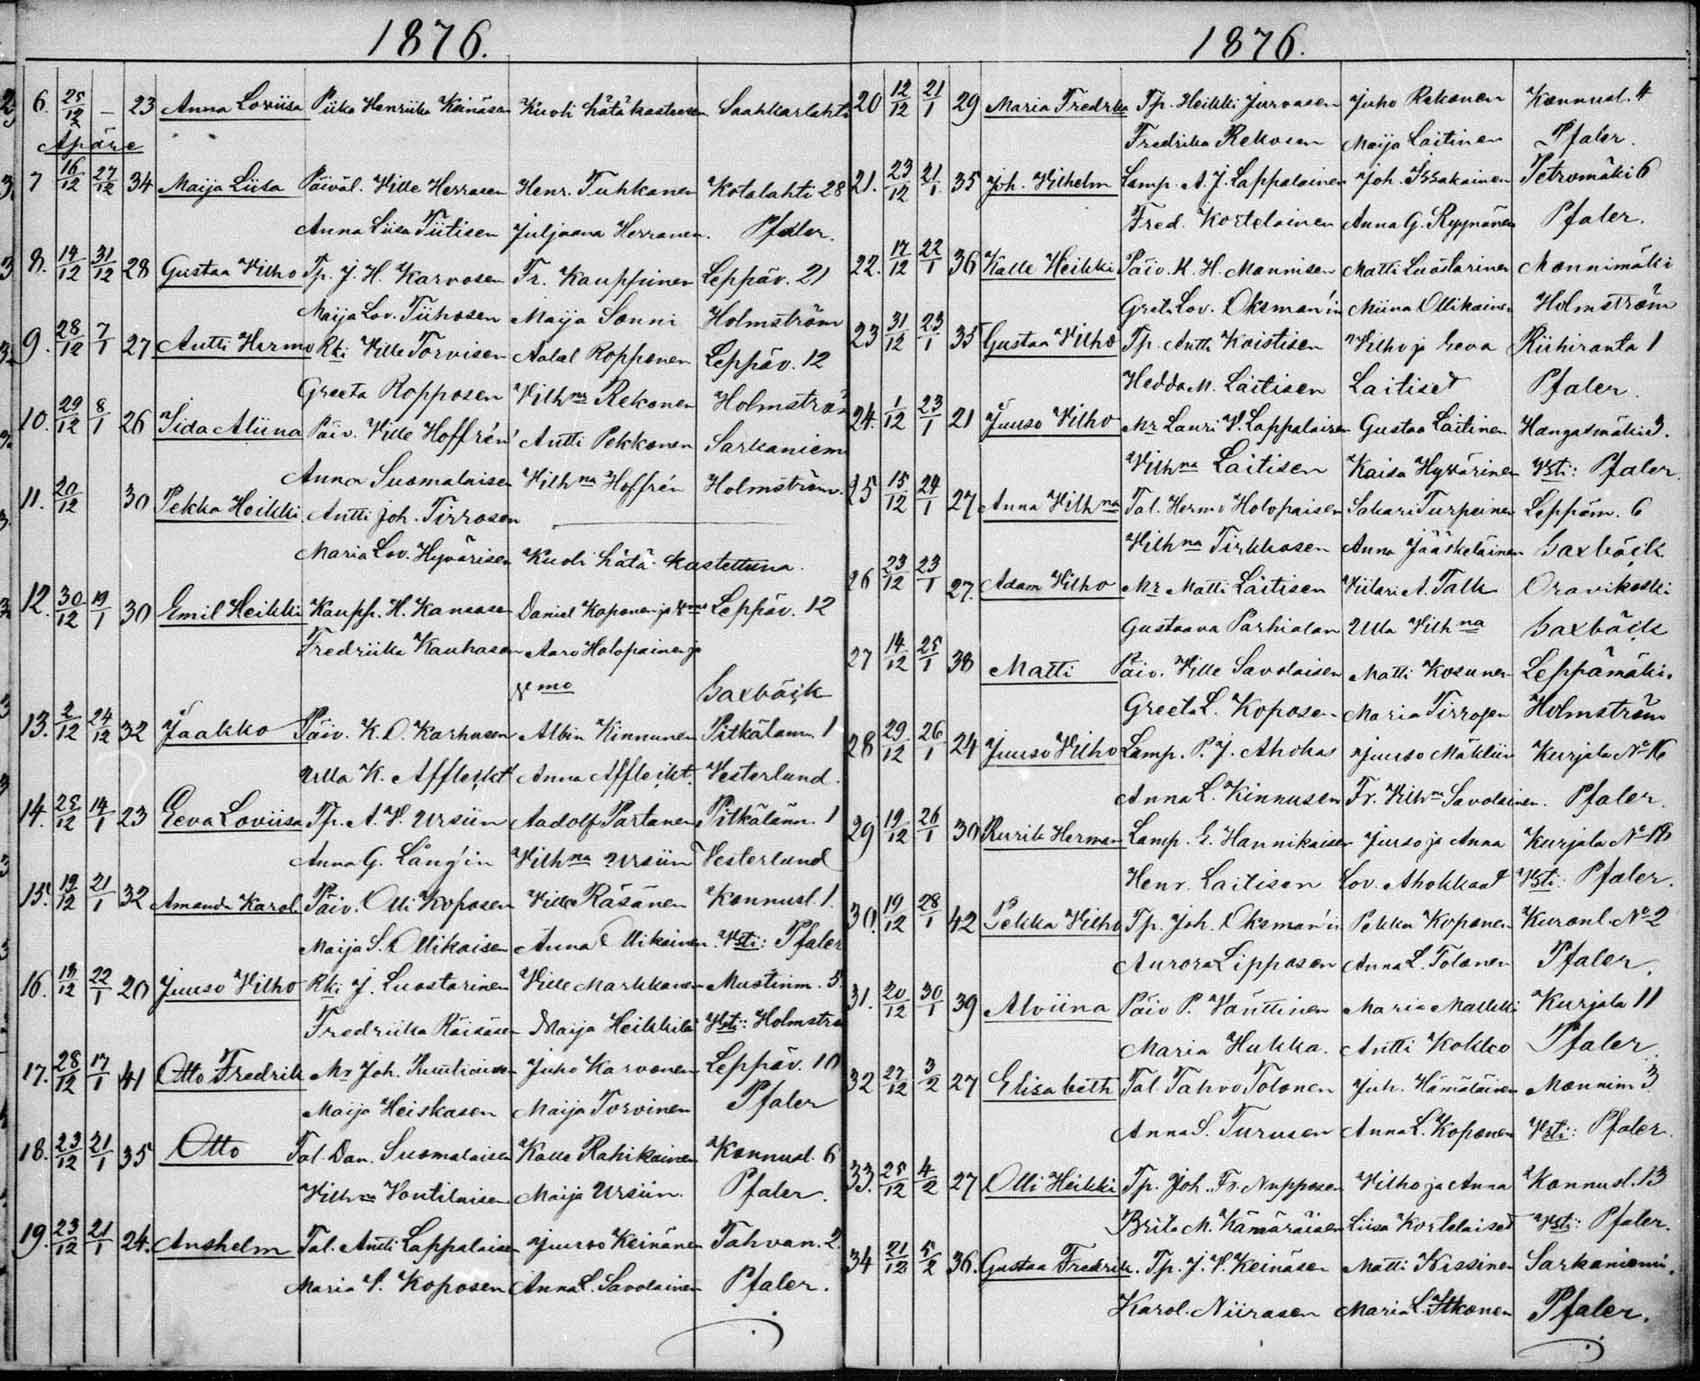 1876.
6. 25/12 — 23 Anna Loviisa Piika Henriika Keinäsen Kuoli hätäkastettuna Saahkarlahti
Äpäre
7 16/12 27/12 34 Maija Liisa Päiväl. Ville Herrasen Henr. Tuhkanen Kotalahti 28
Anna Liisa Tiitisen Juljaana Herranen. Pfaler.
8. 14/12 31/12 28 Gustaa Vilho Tp. J. H. Karvosen Fr. Kauppinen Leppäv. 21
Maija Lov. Tiihosen Maija Sonni Holmström
9. 28/12 7/1 27 Antti Herm Rki Ville Torvisen Aatal Ropponen Leppäv. 12
Greeta Ropposen Vilhna Rekonen Holmström
10. 29/12 8/1 26 Iida Aliina Päiv. Ville Hoffrén Antti Pekkonen Sarkaniem
Anna Suomalaisen Vilhna Hoffrén Holmström.
11. 20/12 30 Pekka Heikki Antti Joh. Tirrosen
Maria Lov. Hyvärisen Kuoli hätä-kastettuna.
12. 30/12 19/1 30 Emil Heikki Kaupp. H. Kansasen Daniel Koponen ja Leppäv. 12
Fredriika Kauhasen Aaro Holopainen ja
vmo Saxbäck
13. 2/12 24/12 32 Jaakko Päiv. K. O. Karhusen Albin Kinnunen Pitkälänn. 1
Ulla K. Affleckt Anna Affleckt. Vesterlund.
14. 25/12 14/1 23 Eeva Loviisa Tp. A. V. Ursiin Aadolf Partanen Pitkälänn. 1
Anna G. Lång'in Vilhna Ursiin Vesterlund
15. 19/12 21/1 32 Amanda Karol. Päiv. Olli Koposen Ville Räsänen Konnusl. 1.
Maija S. Ollikaisen Anna Ollikainen. Vsti: Pfaler
16. 18/12 22/1 20 Juuso Vilho Rki J. Luostarinen Ville Markkanen Mustinm. 5.
Fredriika Räisäsen Maija Heikkilä Vsti: Holmströ
17. 28/12 17/1 41 Otto Fredrik Mr Joh. Juho Karvonen Leppäv. 10
Maija Heiskasen Maija Torvinen Pfaler
18. 23/12 21/1 35 Otto Tal. Dan. Suomalaisen Kalle Rahikainen Konnusl. 6
Vilhna Vontilaisen Maija Ursiin. Pfaler.
19. 23/12 21/1 24. Anshelm Tal. Antti Lappalaisen Juuso Keinänen Tahvan. 2
Maria S. Koposen Anna L. Savolainen Pfaler.
1876.
20 12/12 21/1 29 Maria Fredrika Tp. Heikki Jurvasen Juho Rekonen Konnusl. 4
Fredrika Rekosen Maija Laitinen Pfaler.
21. 23/12 21/1 35 Joh. Vilhelm Lamp. A. J. Lappalainen Joh. Issakainen Petromäki 6
Fred. Kortelainen Anna G. Ryynänen Pfaler.
22. 17/12 22/1 36 Kalle Heikki Päiv. K. H. Mannisen Matti Luostarinen Mannimäki
Greta Lov. Oksman'in Miina Ollikainen Holmström
23 31/12 23/1 35 Gustaa Vilho Tp. Antti Koistisen Vilho ja Eeva Riihiranta 1
Hedda M. Laitisen Laitiset Pfaler.
24. 1/12 23/1 21 Juuso Vilho Mr Lauri V. Lappalaisen Gustaa Laitinen Hangasmäki 3.
Vilhna Laitisen Kaisa Hyvärinen Vsti: Pfaler.
25 15/12 24/1 27 Anna Vilhna Tal. Herm. Holopaisen Sakari Turpeinen Leppäm. 6
Vilhna Tirkkosen Anna Jääskeläinen Saxbäck
26 23/12 23/1 27. Adam Vilho Mr Matti Laitisen Viilari A. Talk Oravikoski
Gustaava Parhialan Ulla Vilhna Saxbäck
27 14/12 25/1 38 Matti Päiv. Ville Savolaisen Matti Kosunen Leppämäki.
Greeta L. Koposen Maria Tirrosen Holmström
28 29/12 26/1 24 Juuso Vilho Lamp. P. J. Ahokas Juuso Mäkliin Kurjala No 16
Anna L. Kinnusen Fr. Vilhna Savolainen. Pfaler.
29 19/12 26/1 30 Rurik Herman Lamp. E. Hannikaisen Juuso ja Anna Kurjala No 18
Henr. Laitisen Lov. Ahokkaat Vsti: Pfaler.
30. 19/12 28/1 42 Pekka Vilho Tp. Joh. Oksman'in Pekka Koponen Kuronl. No 2
Aurora Lipposen Anna L. Tolonen Pfaler.
31. 20/12 30/1 39 Alviina Päiv P. Vänttinen Maria Malkki Kurjala 11
Maria Hukka. Antti Kokko Pfaler
32 27/12 3/2 27 Elisabeth Tal. Tahvo Tolonen Joh. Hämäläinen Mannim 3
Anna S. Turusen Anna L. Koponen Vsti: Pfaler.
33. 25/12 4/2 27 Olli Heikki Tp. Joh. Fr. Nupposen Vilho ja Anna Konnusl. 13
Brita M. Kämäräisen Liisa Kortelaiset Vsti: Pfaler.
34 21/12 5/2 36. Gustaa Fredrik. Tp. J. V. Keinäsen Matti Kissinen Sarkaniemi.
Karol. Niirasen Maria L. Itkonen Pfaler.